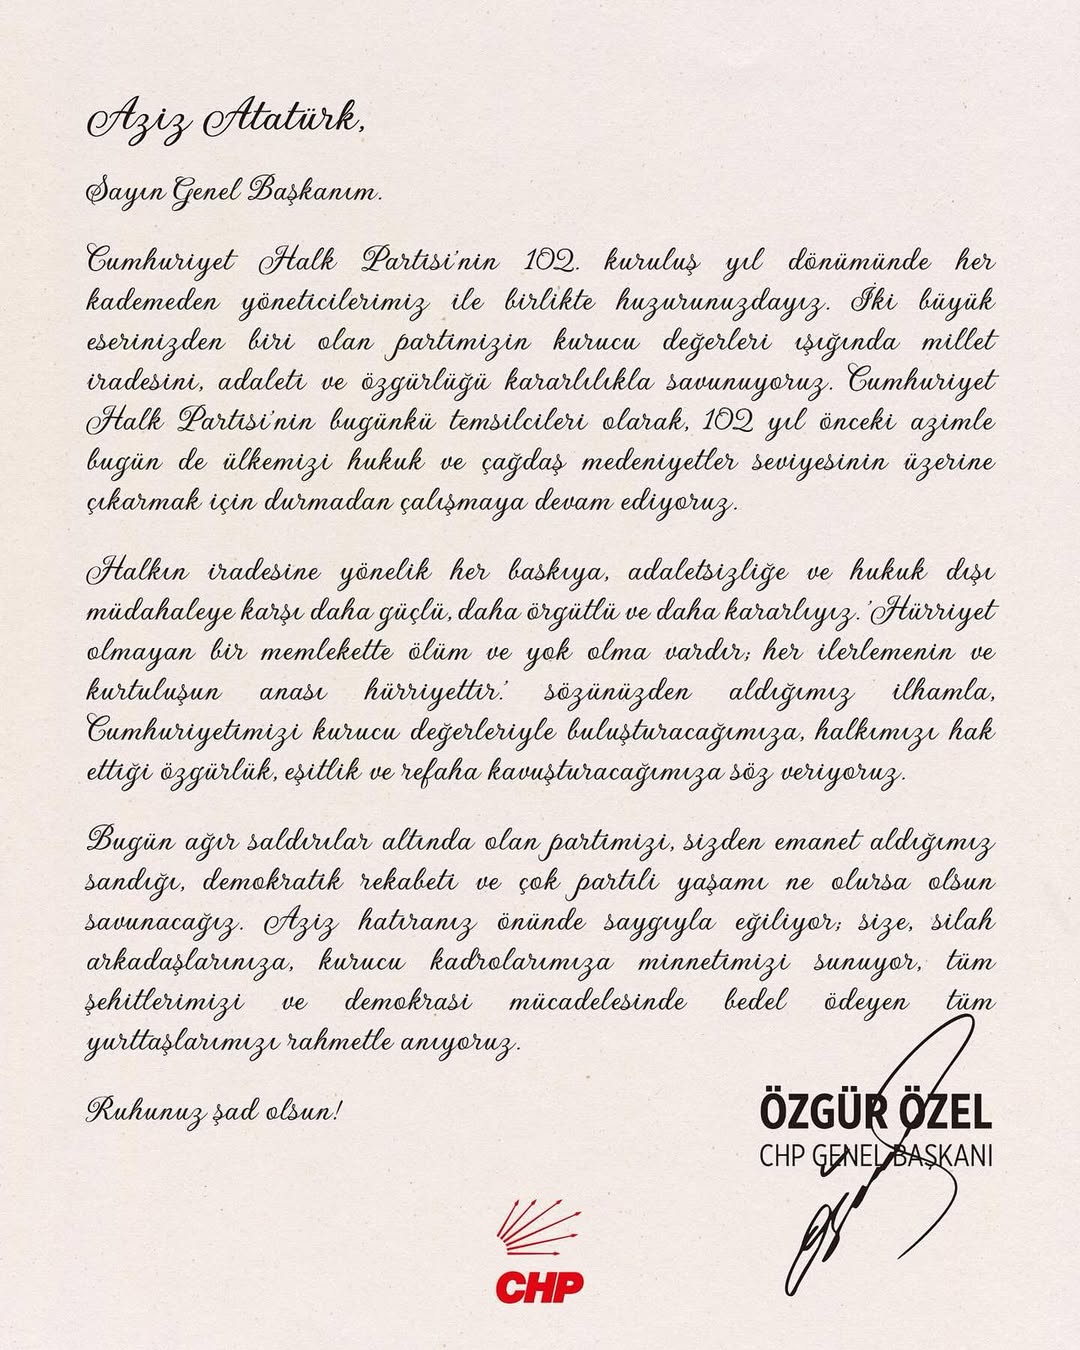 Aziz Atatürk,
Sayın Genel Başkanım.
Cumhuriyet Halk Partisi'nin 102. kuruluş yıl dönümünde her
kademeden yöneticilerimiz ile birlikte huzurunuzdayız. İki büyük
eserinizden biri olan partimizin kurucu değerleri ışığında millet
iradesini, adaleti ve özgürlüğü kararlılıkla savunuyoruz. Cumhuriyet
Halk Partisi'nin bugünkü temsilcileri olarak, 102 yıl önceki azimle
bugün de ülkemizi hukuk ve çağdaş medeniyetler seviyesinin üzerine
çıkarmak için durmadan çalışmaya devam ediyoruz.
Halkın iradesine yönelik her baskıya, adaletsizliğe ve hukuk dışı
müdahaleye karşı daha güçlü, daha örgütlü ve daha kararlıyız. 'Hürriyet
olmayan bir memlekette ölüm ve yok olma vardır; her ilerlemenin ve
kurtuluşun anası hürriyettir.' sözünüzden aldığımız ilhamla,
Cumhuriyetimizi kurucu değerleriyle buluşturacağımıza, halkımızı hak
ettiği özgürlük, eşitlik ve refaha kavuşturacağımıza söz veriyoruz.
Bugün ağır saldırılar altında olan partimizi, sizden emanet aldığımız
sandığı, demokratik rekabeti ve çok partili yaşamı ne olursa olsun
savunacağız. Aziz hatıranız önünde saygıyla eğiliyor; size, silah
arkadaşlarınıza, kurucu kadrolarımıza minnetimizi sunuyor, tüm
şehitlerimizi ve demokrasi mücadelesinde bedel ödeyen tüm
yurttaşlarımızı rahmetle anıyoruz.
Ruhunuz şad olsun!
ÖZGÜR ÖZEL
CHP GENEL BAŞKANI
CHP